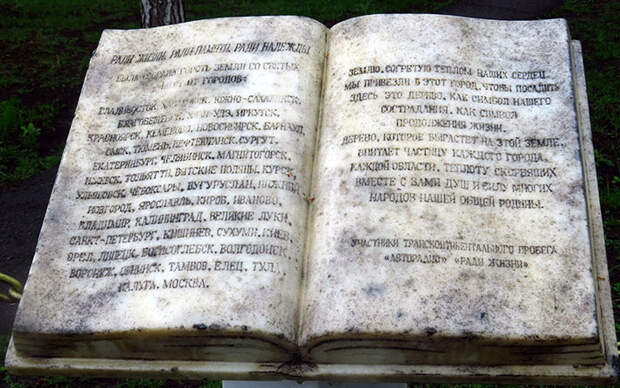 РАДИ ЖИЗНИ, РАДИ ПАМЯТИ, РАДИ НАДЕЖДЫ
ГОРСТЬ ЗЕМЛИ СО СВЯТЫХ
ГОРОДОВ:
ВЛАДИВОСТОК, ЮЖНО-САХАЛИНСК,
ИРКУТСК,
КРАСНОЯРСК, КЕМЕРОВО, НОВОСИБИРСК, БАРНАУЛ,
ОМСК, ТЮМЕНЬ, НЕФТЕЮГАНСК, СУРГУТ,
ЕКАТЕРИНБУРГ, ЧЕЛЯБИНСК, МАГНИТОГОРСК,
ИЖЕВСК, ТОЛЬЯТТИ, ВЯТСКИЕ ПОЛЯНЫ, КУРСК,
УЛЬЯНОВСК, ЧЕБОКСАРЫ, БУГУРУСЛАН, НИЖНИЙ
НОВГОРОД, ЯРОСЛАВЛЬ, КИРОВ, ИВАНОВО,
ВЛАДИМИР, КАЛИНИНГРАД, ВЕЛИКИЕ ЛУКИ,
САНКТ-ПЕТЕРБУРГ, КИШИНЕВ, СУХУМИ, КИЕВ,
ОРЕЛ, ЛИПЕЦК, БОРИСОГЛЕБСК, ВОЛГОДОНСК,
ВОРОНЕЖ, ОБНИНСК, ТАМБОВ, ЕЛЕЦ, ТУЛА,
КАЛУГА, МОСКВА.
ЗЕМЛЮ, СОГРЕТУЮ ТЕПЛОМ НАШИХ СЕРДЕЦ,
МЫ ПРИВЕЗЛИ В ЭТОТ ГОРОД, ЧТОБЫ ПОСАДИТЬ
ЗДЕСЬ ЭТО ДЕРЕВО, КАК СИМВОЛ НАШЕГО
СОСТРАДАНИЯ, КАК СИМВОЛ
ПРОДОЛЖЕНИЯ ЖИЗНИ.
ДЕРЕВО, КОТОРОЕ ВЫРАСТЕТ НА ЭТОЙ ЗЕМЛЕ,
ВПИТАЕТ ЧАСТИЦУ КАЖДОГО ГОРОДА,
КАЖДОЙ ОБЛАСТИ, ТЕПЛОТУ СКОРБЯЩИХ
ВМЕСТЕ С ВАМИ ДУШ И СИЛУ МНОГИХ
НАРОДОВ НАШЕЙ ОБЩЕЙ РОДИНЫ.
УЧАСТНИКИ ТРАНСКОНТИНЕНТАЛЬНОГО ПРОБЕГА
«АВТОРАДИО» «РАДИ ЖИЗНИ»